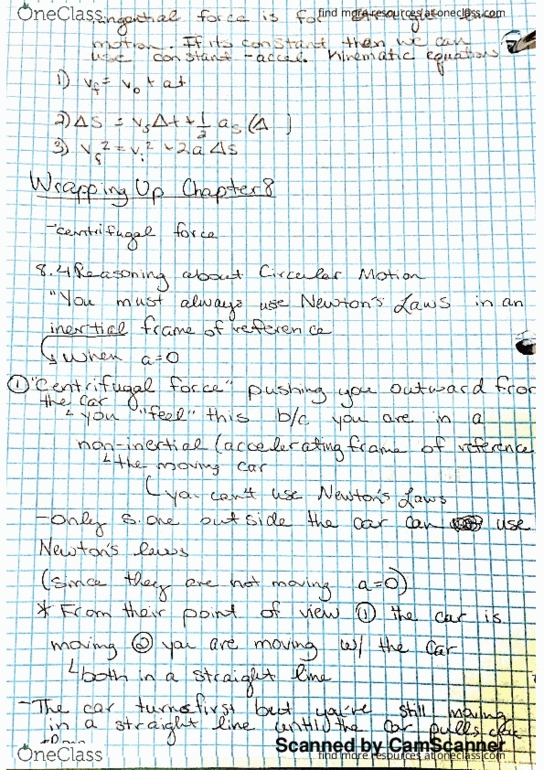 OneClass
find more resources at oneclass.com
tangential force is for
motion. If its constant then we can
use constant-accel. kinematic equations
1) vf = v0 + at
2) Δs = vsΔt + 1/2 as (Δ )
3) vf² = vi² + 2a Δs
Wrapping Up Chapter 8
-centrifugal force
8.4 Reasoning about Circular Motion
"You must always use Newton's Laws in an
inertial frame of reference
↳ when a=0
① "Centrifugal force" pushing you outward from
the car
↳ you "feel" this b/c you are in a
non-inertial (accelerating frame of reference
↳ the moving car
↳ you can't use Newton's Laws
-only s.one outside the car can use
Newton's laws
(since they are not moving a=0)
* From their point of view ① the car is
moving ② you are moving w/ the car
↳ both in a straight line
-The car turns first but you're still moving
in a straight line until the car pulls
OneClass
Scanned by CamScanner
find more resources at oneclass.com